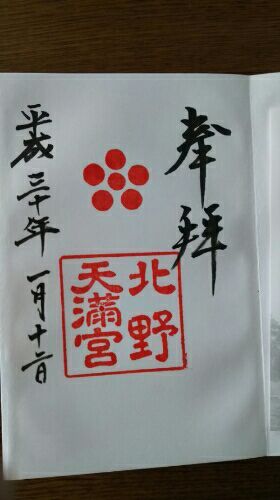 奉拝
北野
天満宮
平成三十年一月十二日